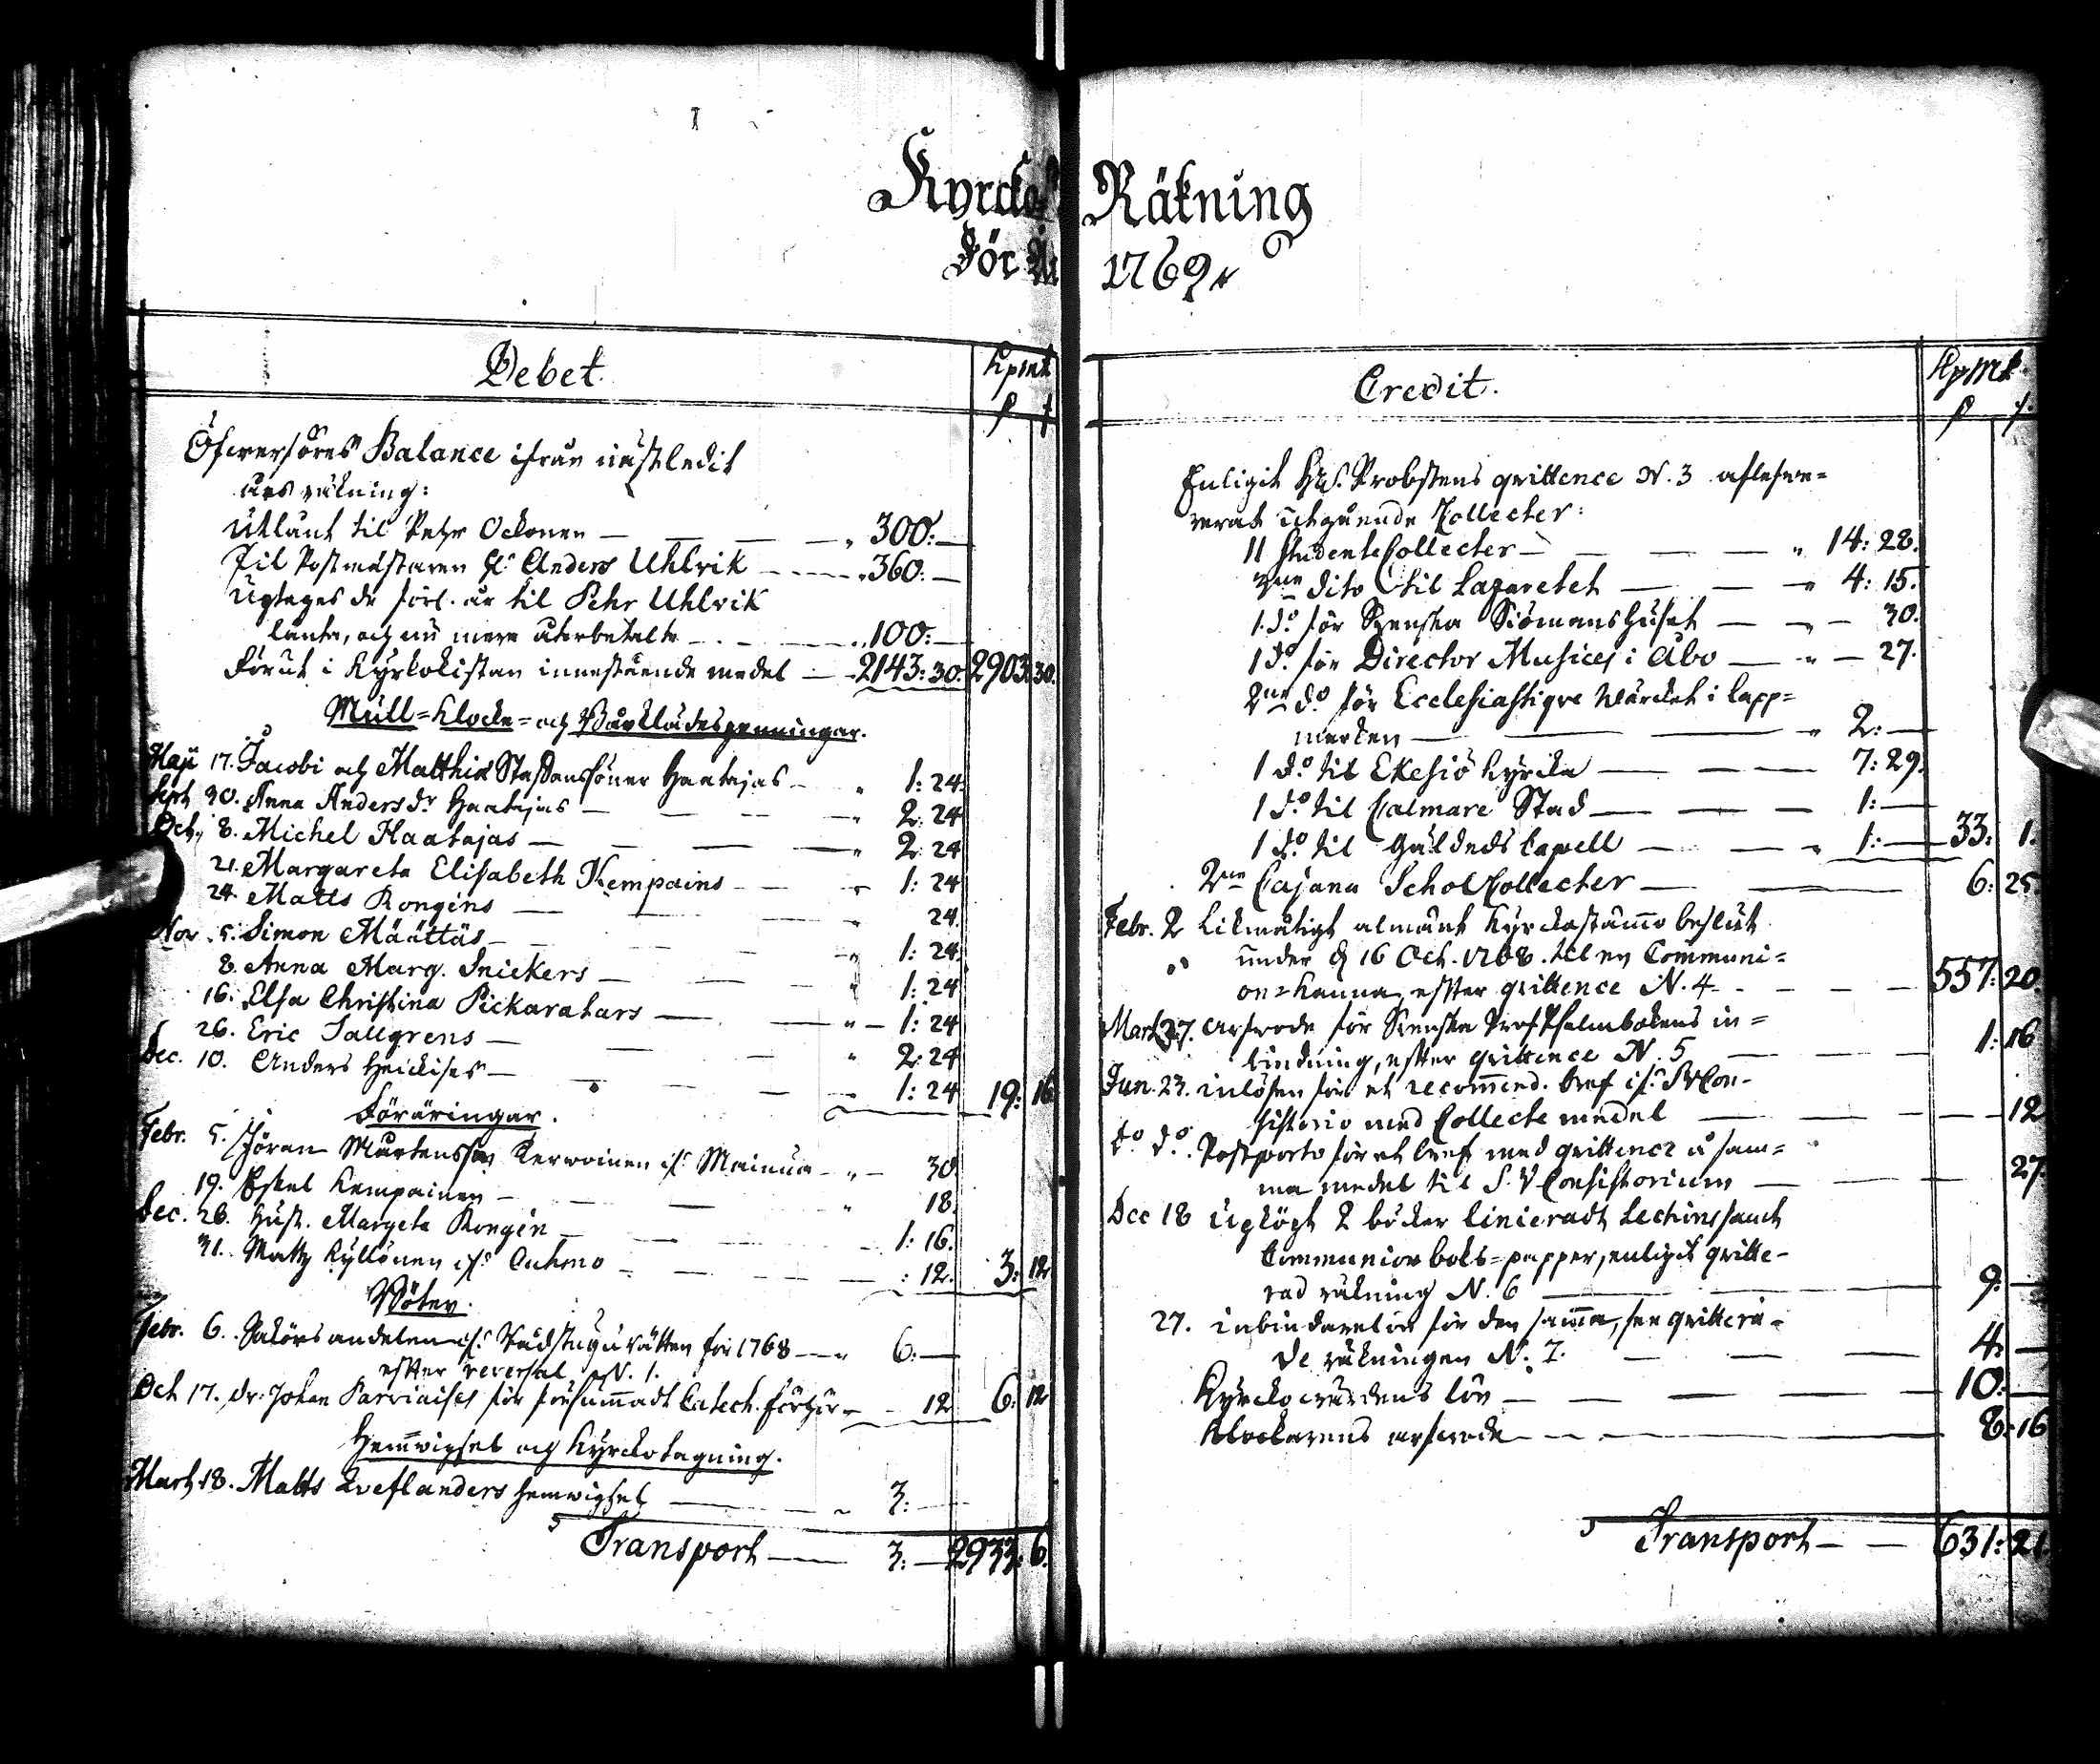 Kyrcko Räkning
För År 1769.
Debet.
Kpmt
Öfwerföres Balance ifrån nästledit
års räkning:
Utlånt til Pehr Ockonen — — — „ 300: —
Til Postmästaren Hr Anders Uhlvik — „ 360: —
Uptages de förl. år til Pehr Uhlvik
lånte, och nu mera återbetalte — „ 100: —
Förut i Kyrkokistan innestående medel — 2143: 30. 2903: 30.
Mull= Klocke= och Bårklädespenningar.
Maji 17. Jacobi och Matthiæ Staffanssöner Haatajas — „ 1: 24.
Sept 30. Anna Andersdr Haatajas — „ 2: 24
Oct. 8. Michel Haatajas — „ 2: 24
21. Margareta Elisabeth Kempains — „ 1: 24
24. Matts Rongins — „ 24.
Nov. 5. Simon Määttäs — „ 1: 24.
8. Anna Marg. Snickers — „ 1: 24
16. Elsa Christina Pickaratars — „ 1: 24
26. Eric Tallgrens — „ 2: 24
Dec. 10. Anders Heickises — 1: 24 19: 16
Föräringar.
Febr. 5. Jöran Mårtensson Kerwoinen ifr Mainua — „ 30.
19. Eskel Kempainen — „ 18.
Dec. 26. Hust. Margeta Rongin — 1: 16.
31. Matts Kyllönen ifr Cuhmo — : 12. 3: 12
Böter.
Febr. 6. Saköresandelen ifr Rådstugu rätten för 1768 — „ 6: —
efter reversal N. 1.
Oct 17. Dr: Johan Parviaises för försummadt Catech. förhör — 12 6: 12
Hemwigsel och Kyrkotagning.
Mart. 18. Matts Zveflanders hemwigsel — „ 3: —
Transport — 3: — 2933: 6.
Credit.
KpMt
Enligit HW. Probstens qvittence N. 3 aflefwe=
rerat utgående Collecter:
11 StudenteCollecter — „ 14: 28.
2ne dito til Lazaretet — „ 4: 15.
1. do för Svenska Siömanshuset — „ — 30.
1 do för Director Musices i Åbo — „ — 27.
2ne do för Ecclesiastiqve Wärcket i Lapp=
marken — „ 2: —
1 do til Ekesiö Kyrcka — 7: 29.
1 do til Calmare Stad — 1: —
1 do til Gäldeds Capell — „ 1: — 33: 1.
2ne Cajana Schol Collecter — 6: 25.
Febr. 2 Likmätigt almänt Kyrckostämmo beslut
under d 16 Oct. 1768. til en Communi=
on=kanna, efter qvittence N. 4 — 557: 20.
Mart. 27. Arfwode för Svenska Prof Psalmbokens in=
bindning, efter qvittence N. 5 — 1: 16
Jun. 23. inlösen för et recommend. bref ifr SVCon-
sistorio med Collecte medel — 12
do do. Postporto för et bref med qvittence å sam=
ma medel til S. V Consistorium — 27.
Dec 18 Upköpt 2 böcker linieradt Lections samt
Communion boks=papper, enligit qvitte-
rad räkning N. 6 — 9: —
27. inbindarelön för den samma, see qvittera-
de räkningen N. 7. — 4: —
Kyrckowärdens lön — 10: —
Klockarens arfwode — 8: 16
Transport — 631: 21.